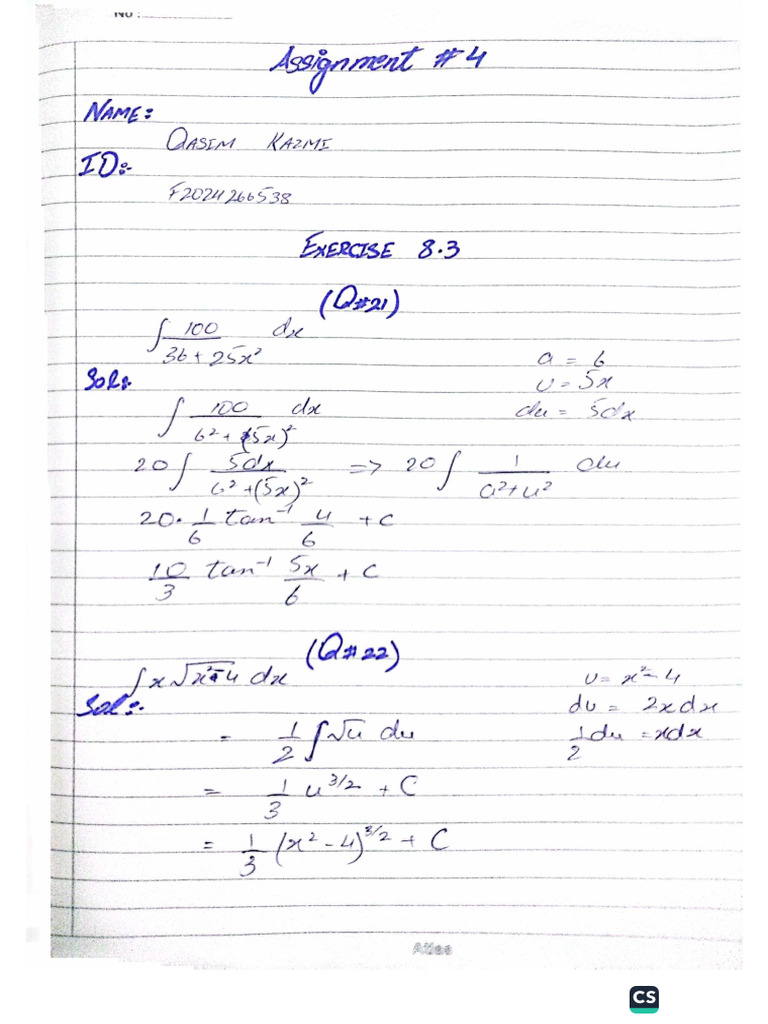 No :
Assignment # 4
NAME:
QASIM KAZMI
ID:-
F2024266538
EXERCISE 8.3
(Q#21)
∫ 100/(36 + 25x²) dx
a = 6
Sol:-
u = 5x
∫ 100/(6² + (5x)²) dx
du = 5dx
20 ∫ 5dx/(6² + (5x)²) => 20 ∫ 1/(a² + u²) du
20 · 1/6 tan⁻¹ u/6 + C
10/3 tan⁻¹ 5x/6 + C
(Q#22)
∫ x √(x² - 4) dx
u = x² - 4
Sol:-
du = 2x dx
= 1/2 ∫ √u du
1/2 du = xdx
= 1/3 u^3/2 + C
= 1/3 (x² - 4)^3/2 + C
Atlas
CS